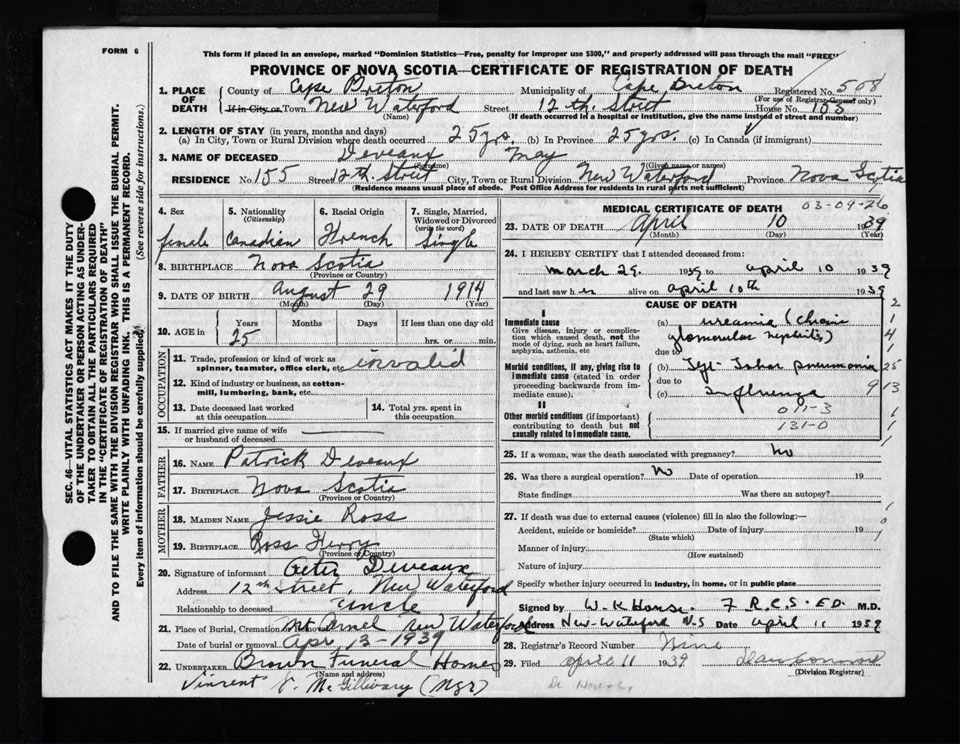 FORM 6
This form if placed in an envelope, marked "Dominion Statistics—Free, penalty for improper use $300," and properly addressed will pass through the mail "FREE"
PROVINCE OF NOVA SCOTIA—CERTIFICATE OF REGISTRATION OF DEATH
SEC. 46—VITAL STATISTICS ACT MAKES IT THE DUTY
OF THE UNDERTAKER OR PERSON ACTING AS UNDER-
TAKER TO OBTAIN ALL THE PARTICULARS REQUIRED
IN THE "CERTIFICATE OF REGISTRATION OF DEATH"
AND TO FILE THE SAME WITH THE DIVISION REGISTRAR WHO SHALL ISSUE THE BURIAL PERMIT.
WRITE PLAINLY WITH UNFADING INK. THIS IS A PERMANENT RECORD.
Every item of information should be carefully supplied. (See reverse side for instructions.)
1. PLACE OF DEATH County of Cape Breton Municipality of Cape Breton Registered No. 508
(For use of Registrar-General only)
If in City or Town New Waterford Street 12th. Street House No.
(Name) (If death occurred in a hospital or institution, give the name instead of street and number)
2. LENGTH OF STAY (in years, months and days)
(a) In City, Town or Rural Division where death occurred 25 yrs. (b) In Province 25 yrs. (c) In Canada (if immigrant)
3. NAME OF DECEASED Deveaux May
(Surname) (Given name or names)
RESIDENCE No. 155 Street 12th Street City, Town or Rural Division New Waterford Province Nova Scotia
(Residence means usual place of abode. Post Office Address for residents in rural parts not sufficient)
4. Sex female
5. Nationality (Citizenship) Canadian
6. Racial Origin French
7. Single, Married, Widowed or Divorced (write the word) Single
8. BIRTHPLACE Nova Scotia
(Province or Country)
9. DATE OF BIRTH August 29 1914
(Month) (Day) (Year)
10. AGE in Years Months Days If less than one day old
25 hrs. or min.
OCCUPATION
11. Trade, profession or kind of work as spinner, teamster, office clerk, etc. invalid
12. Kind of industry or business, as cotton-mill, lumbering, bank, etc.
13. Date deceased last worked at this occupation
14. Total yrs. spent in this occupation
15. If married give name of wife or husband of deceased
FATHER
16. NAME Patrick Deveaux
17. BIRTHPLACE Nova Scotia
(Province or Country)
MOTHER
18. MAIDEN NAME Jessie Ross
19. BIRTHPLACE Ross Ferry
(Province or Country)
20. Signature of informant Peter Deveaux
Address 12th Street, New Waterford
Relationship to deceased Uncle
21. Place of Burial, Cremation or Removal New Waterford
Date of burial or removal Apr 13-1939
22. UNDERTAKER Brown Funeral Homes
(Name and address)
Vincent J. McGillivary (Mgr)
MEDICAL CERTIFICATE OF DEATH 03-09-26
23. DATE OF DEATH April 10 1939
(Month) (Day) (Year)
24. I HEREBY CERTIFY that I attended deceased from:
March 29. 1939 to April 10 1939
and last saw her alive on April 10th 1939
CAUSE OF DEATH
I
Immediate cause
Give disease, injury or complication which caused death, not the mode of dying, such as heart failure, asphyxia, asthenia, etc
(a) uraemia (chronic glomerular nephritis)
due to
Morbid conditions, if any, giving rise to immediate cause (stated in order proceeding backwards from immediate cause).
(b) lobar pneumonia
due to
(c) Influenza
II
Other morbid conditions (if important) contributing to death but not causally related to immediate cause.
011-3
131-0
25. If a woman, was the death associated with pregnancy? No
26. Was there a surgical operation? No Date of operation 19
State findings Was there an autopsy?
27. If death was due to external causes (violence) fill in also the following:—
Accident, suicide or homicide? Date of injury 19
(State which)
Manner of injury
(How sustained)
Nature of injury
Specify whether injury occurred in industry, in home, or in public place
Signed by W. K House. F.R.C.S.-ED. M.D.
Address New-Waterford N.S Date April 11 1939
28. Registrar's Record Number Nine
29. Filed April 11 1939
(Division Registrar)